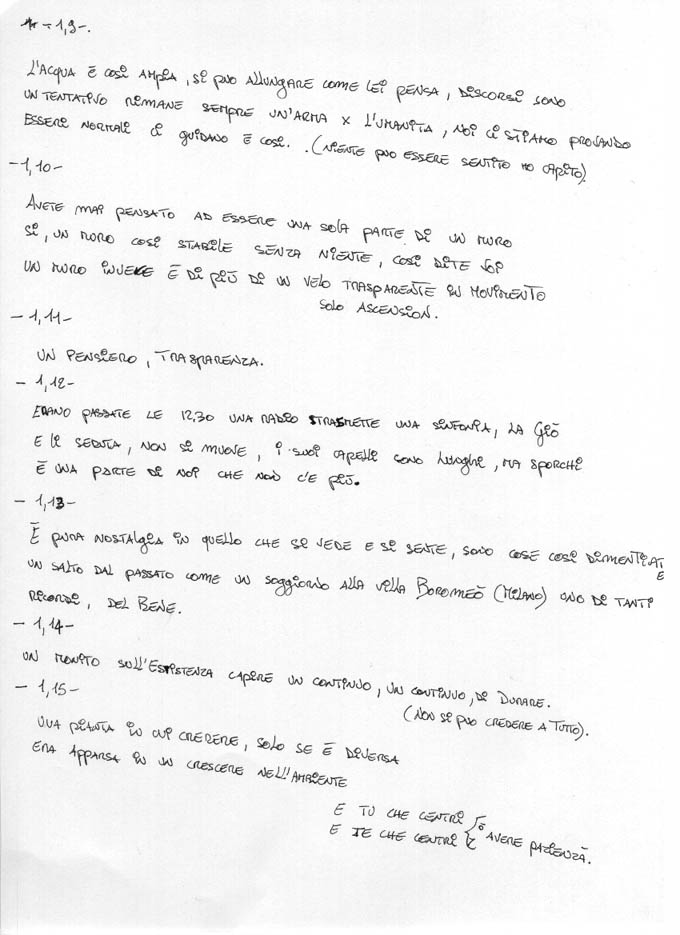 - 1,9-.
L'ACQUA È COSI AMPIA, SI PUO ALLUNGARE COME LEI PENSA, DISCORSI SONO
UN TENTATIVO RIMANE SEMPRE UN'ARMA X L'UMANITA, NOI CI STIAMO PROVANDO
ESSERI NORMALI CI GUIDANO E COSI. .(NIENTE PUO ESSERE SENTITO HO CAPITO).
-1,10-
AVETE MAI PENSATO AD ESSERE UNA SOLA PARTE DI UN MURO
SI, UN MURO COSI STABILE SENZA NIENTE, COSI DITE VOI
UN MURO INVECE È DI PIÙ DI UN VELO TRASPARENTE IN MOVIMENTO
SOLO ASCENSION.
- 1,11-
UN PENSIERO, TRASPARENZA.
- 1,12-
ERANO PASSATE LE 12,30 UNA RADIO STRASMETTE UNA SINFONIA, LA GIÒ
E LI SEDUTA, NON SI MUOVE, I SUOI CAPELLI SONO LUNGHI, MA SPORCHI
È UNA PARTE DI NOI CHE NON C'E PIÙ.
- 1,13-
È PURA NOSTALGIA IN QUELLO CHE SI VEDE E SI SENTE, SONO COSE COSI DIMENTICATE
UN SALTO DAL PASSATO COME UN SOGGIORNO ALLA VILLA BOROMEÒ (MILANO) UNO DI TANTI
RICORDI, DEL BENE.
- 1,14-
UN MONITO SULL'ESISTENZA CAPIRE UN CONTINUO, UN CONTINUO, DI DURARE.
(NON SI PUO CREDERE A TUTTO).
- 1,15-
UNA PIANTA IN CUI CREDERE, SOLO SE È DIVERSA
ERA APPARSA IN UN CRESCERE NELL'AMBIENTE
E TU CHE CENTRI
E TE CHE CENTRI AVERE PAZIENZA.